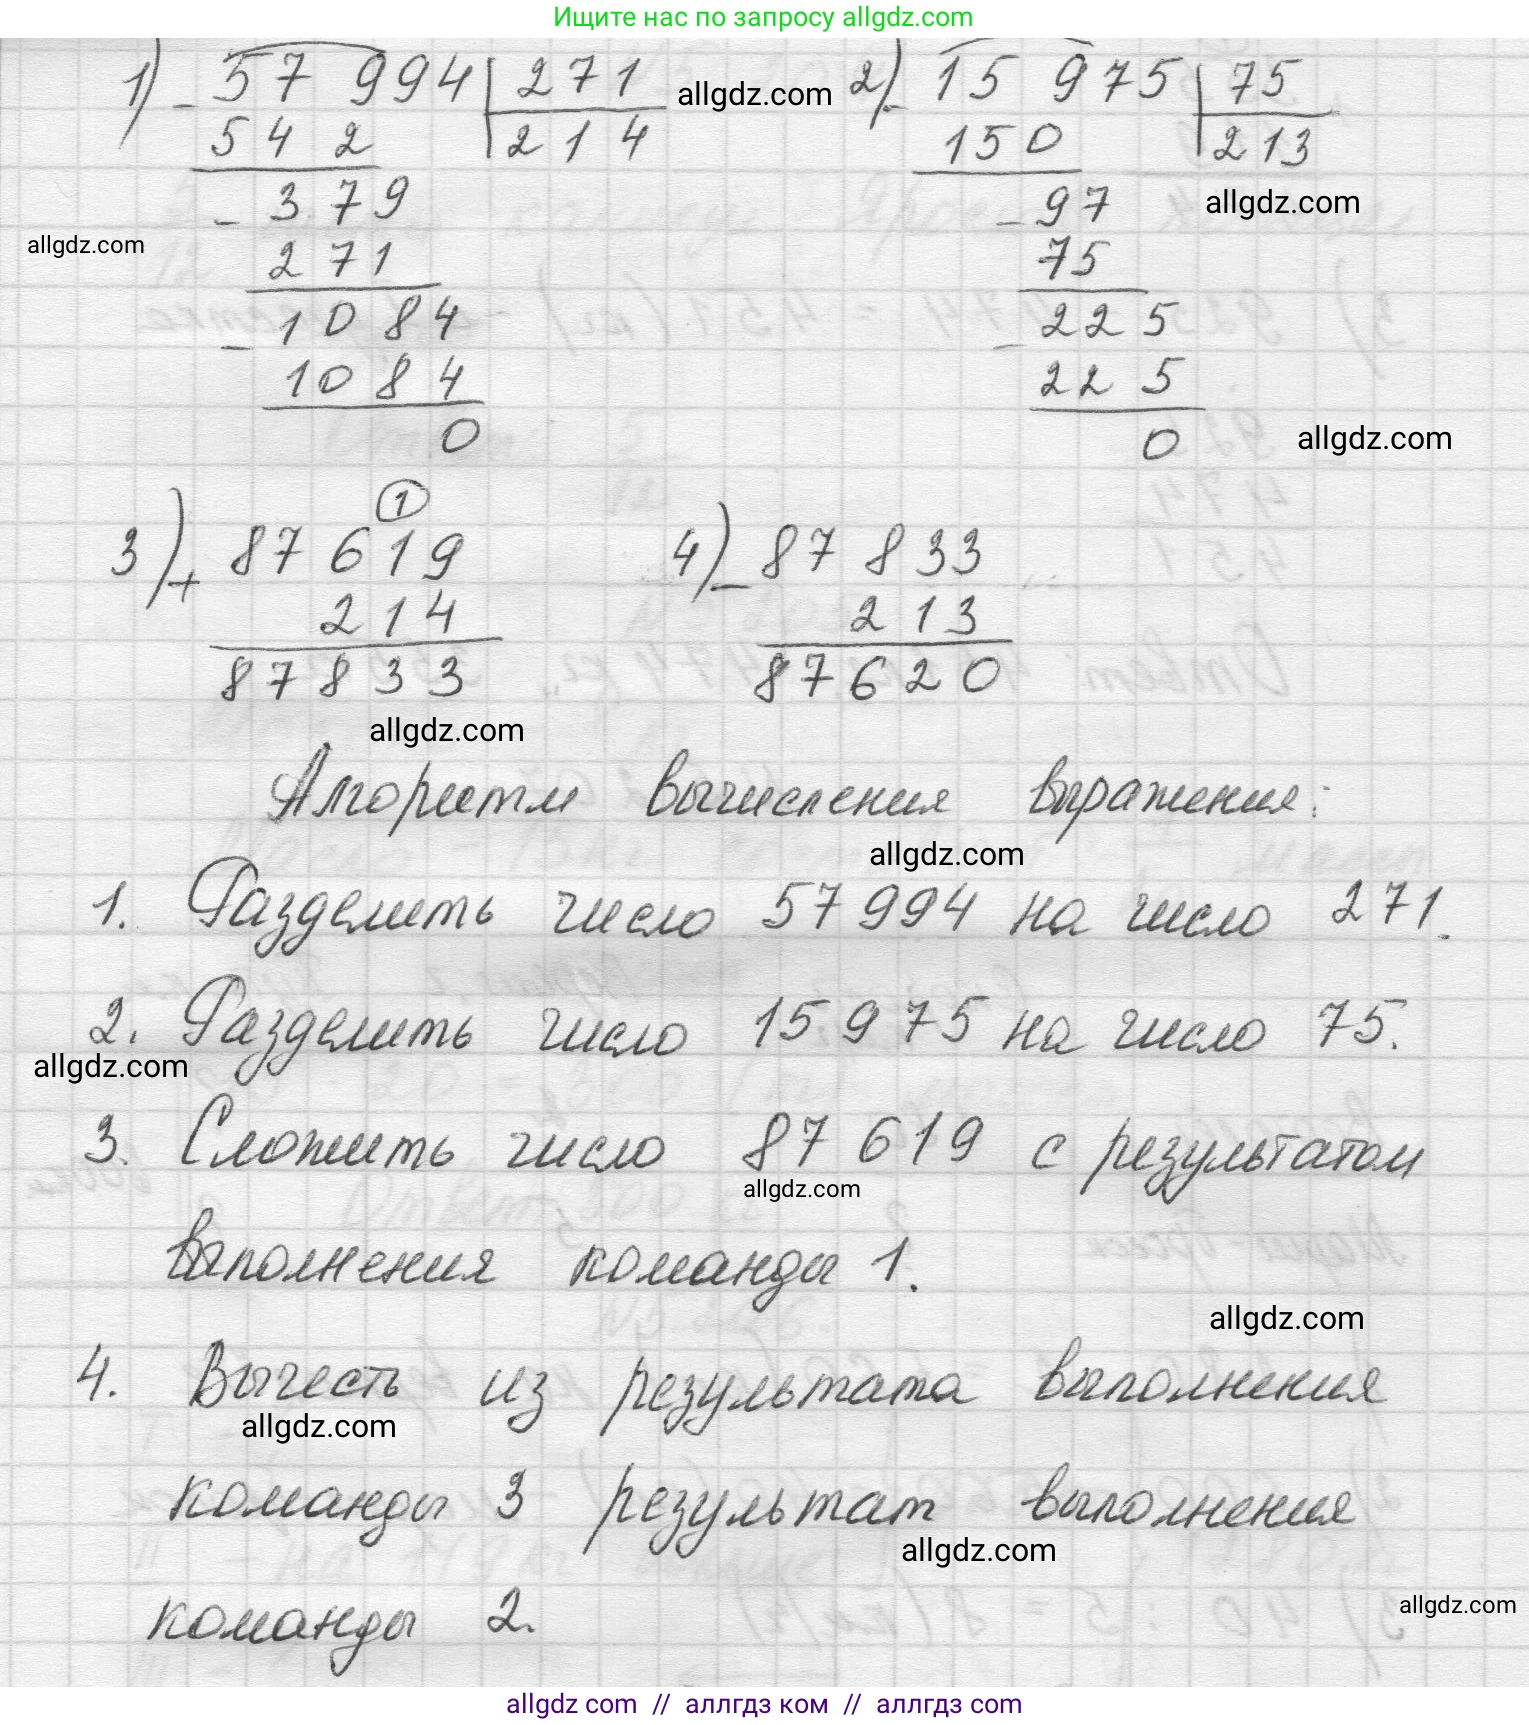 Ищите нас по запросу allgdz.com
1) - 57 994 | 271 allgdz.com 2) - 15 975 | 75
542 214 150 213
- 379 - 97 allgdz.com
allgdz.com 271 75
- 1084 - 225
1084 225
0 0 allgdz.com
1
3) + 87 619 4) - 87 833
214 213
87833 87620
allgdz.com
Алгоритм вычисления выражения:
allgdz.com
1. Разделить число 57 994 на число 271.
2. Разделить число 15 975 на число 75.
allgdz.com
3. Сложить число 87 619 с результатом
allgdz.com
выполнения команды 1.
allgdz.com
4. Вычесть из результата выполнения
allgdz.com
команды 3 результат выполнения
allgdz.com
команды 2.
allgdz.com
allgdz com // аллгдз ком // аллгдз com